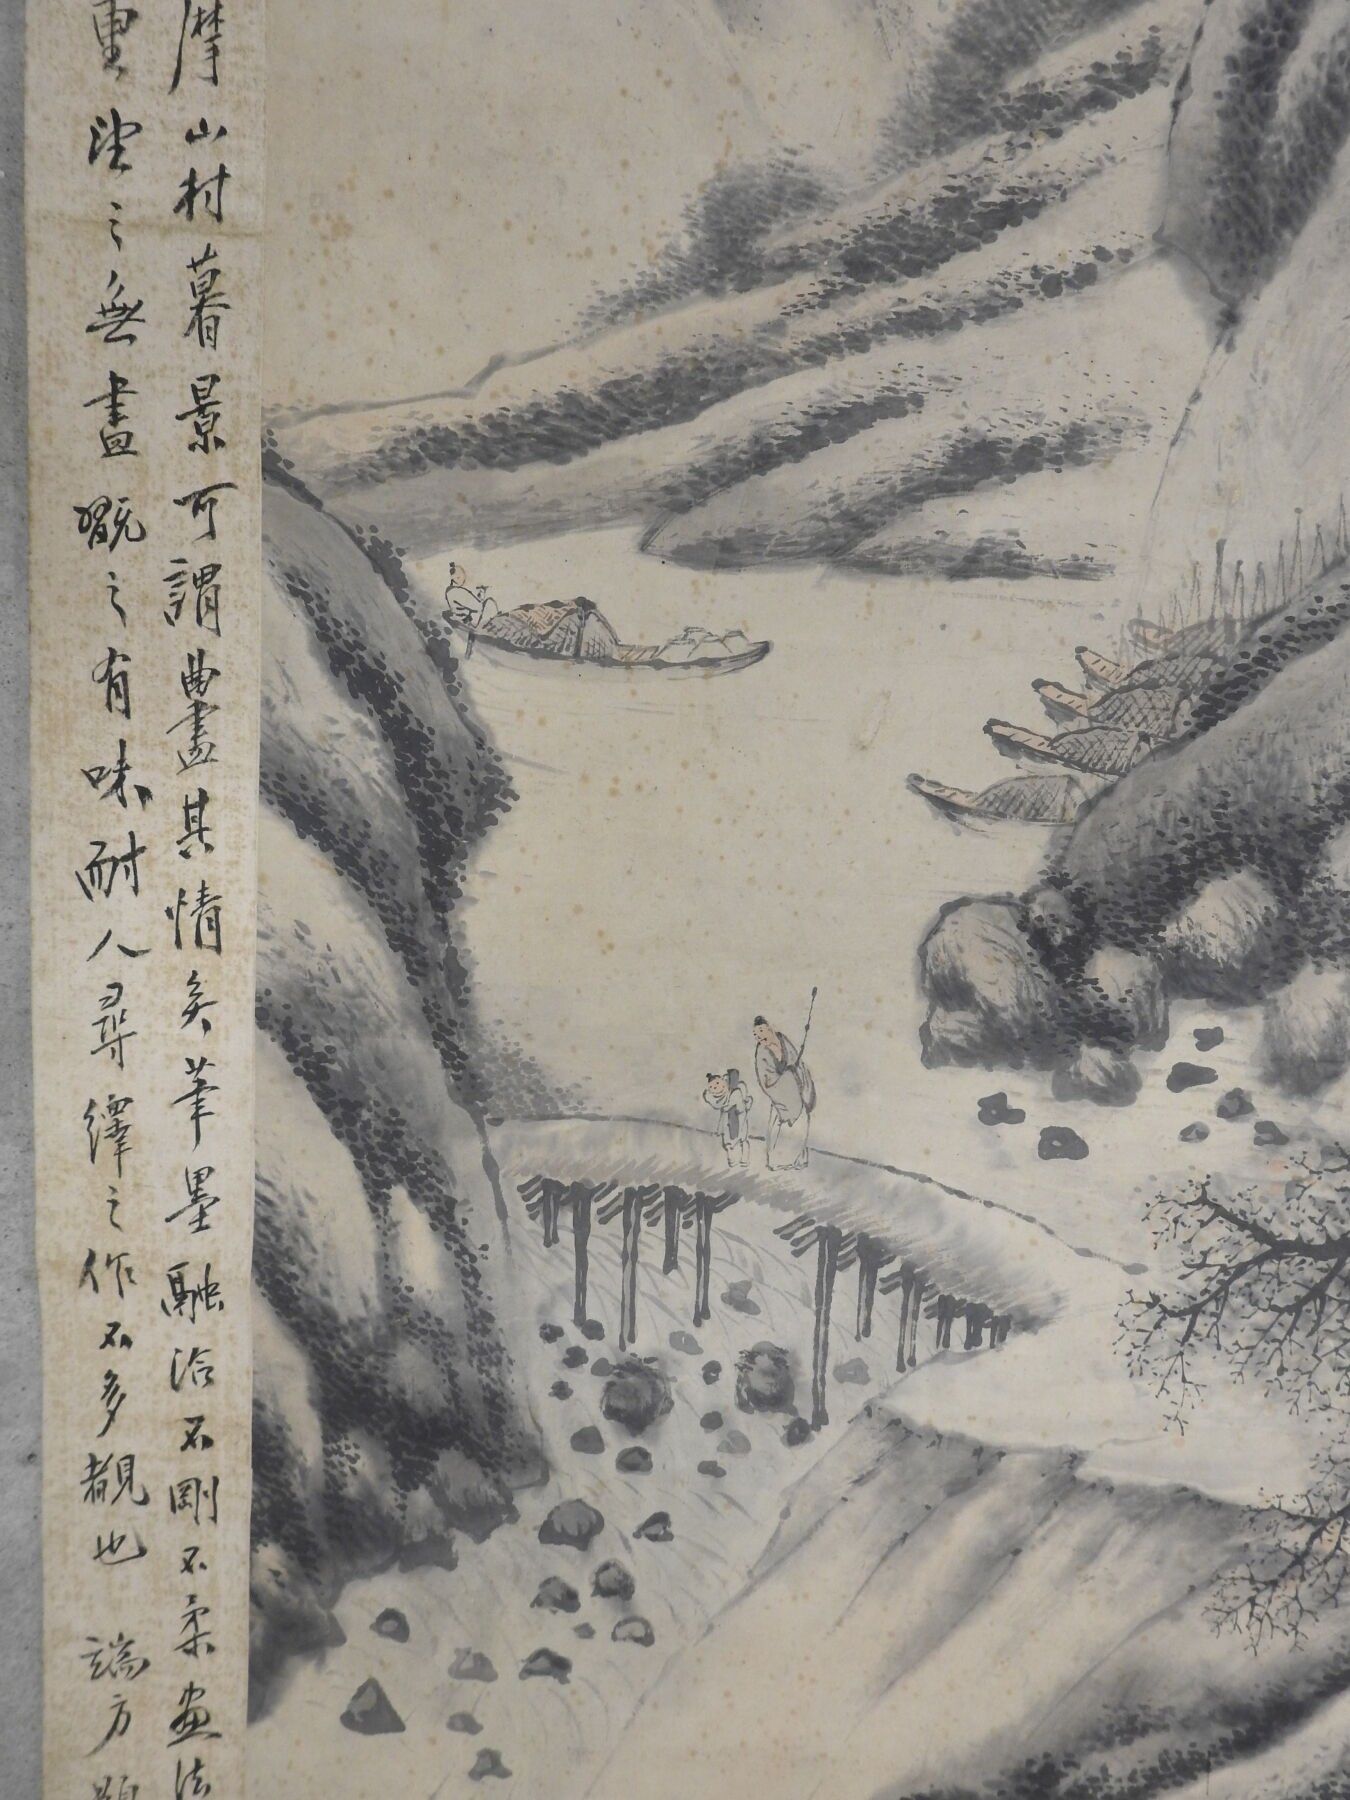 摩山村暮景可謂曲盡其情矣筆墨融洽不剛不柔画法
重望之無盡翫之有味耐人尋繹之作不多觀也　端方題